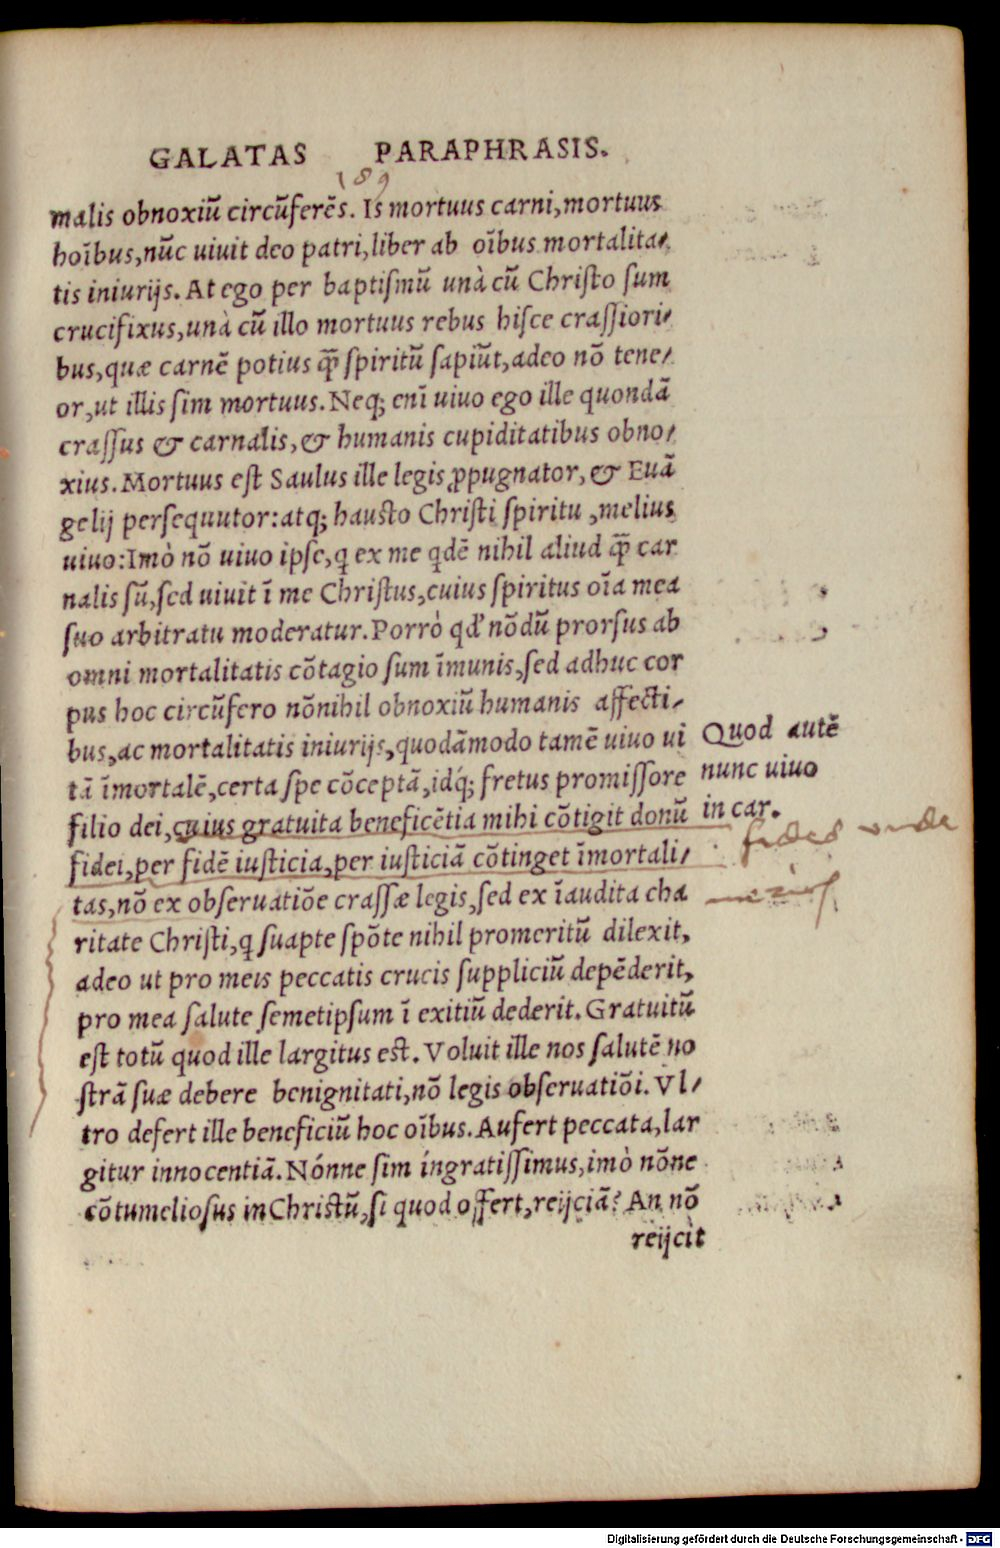 GALATAS PARAPHRASIS.
189
malis obnoxiū circūferēs. Is mortuus carni, mortuus
hoībus, nūc uiuit deo patri, liber ab oībus mortalita⸗
tis iniurijs. At ego per baptiſmū unà cū Chriſto ſum
crucifixus, unà cū illo mortuus rebus hiſce craſſiori⸗
bus, quæ carnē potius q̄ ſpiritū ſapiūt, adeo nō tene⸗
or, ut illis ſim mortuus. Neq; enī uiuo ego ille quondā
craſſus & carnalis, & humanis cupiditatibus obno⸗
xius. Mortuus eſt Saulus ille legis ꝓpugnator, & Euā
gelij perſequutor: atq; hauſto Chriſti ſpiritu , melius
uiuo: Imò nō uiuo ipſe, q ex me qdē nihil aliud q̄ car
nalis ſū, ſed uiuit ī me Chriſtus, cuius ſpiritus oīa mea
ſuo arbitratu moderatur. Porrò qd' nōdū prorſus ab
omni mortalitatis cōtagio ſum īmunis, ſed adhuc cor
pus hoc circūfero nōnihil obnoxiū humanis affecti⸗
bus, ac mortalitatis iniurijs, quodāmodo tamē uiuo ui
tā īmortalē, certa ſpe cōceptā, idq́; fretus promiſſore
filio dei, cuius gratuita beneficētia mihi cōtigit donū
fidei, per fidē iuſticia, per iuſticiā cōtinget īmortali⸗
tas, nō ex obſeruatiōe craſſæ legis, ſed ex īaudita cha
ritate Chriſti, q ſuapte ſpōte nihil promeritū dilexit,
adeo ut pro meis peccatis crucis ſuppliciū depēderit,
pro mea ſalute ſemetipſum ī exitiū dederit. Gratuitū
eſt totū quod ille largitus eſt. Voluit ille nos ſalutē no
ſtrā ſuæ debere benignitati, nō legis obſeruatiōi. Vl⸗
tro defert ille beneficiū hoc oībus. Aufert peccata, lar
gitur innocentiā. Nónne ſim íngratiſſimus, imò nōne
cōtumelioſus in Chriſtū, ſi quod offert, reijciā? An nō
reijcit
Quod autē
nunc uiuo
in car.
fides unde
Digitalisierung gefördert durch die Deutsche Forschungsgemeinschaft - DFG